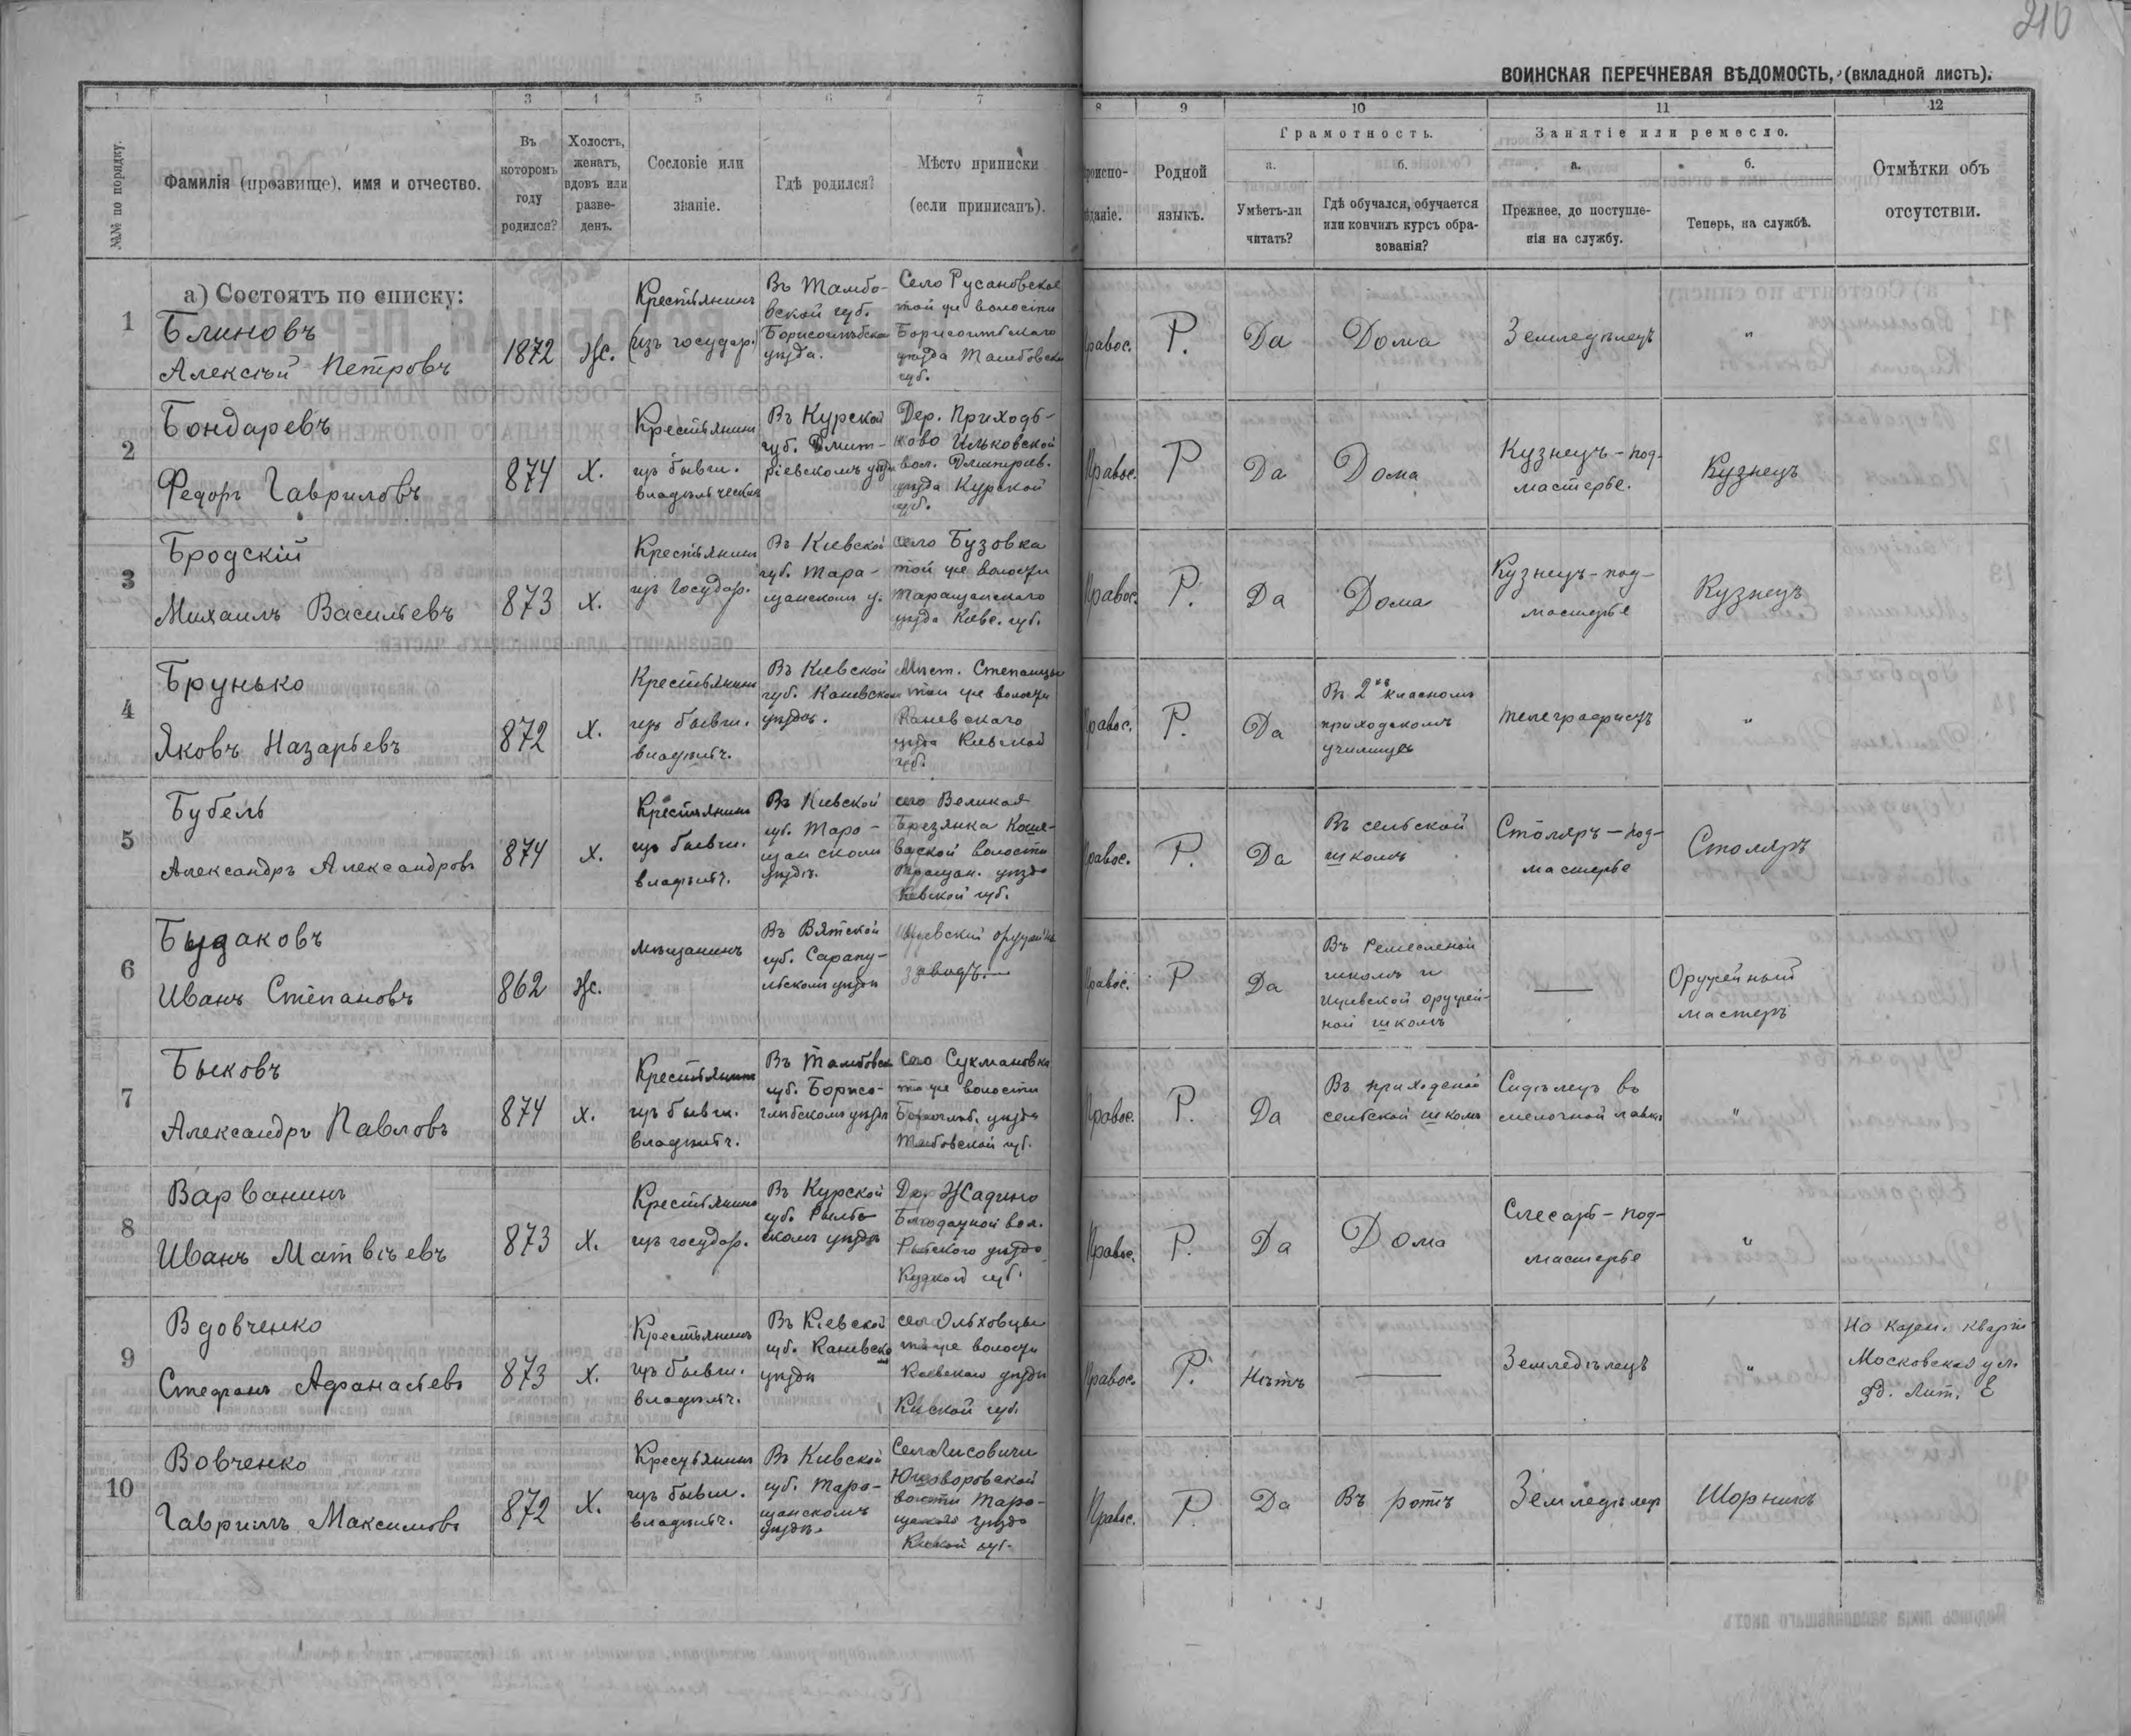 210
ВОИНСКАЯ ПЕРЕЧНЕВАЯ ВѢДОМОСТЬ, (вкладной листъ).
1 1 3 4 5 6 7 8 9 10 11 12
№№ по порядку.
Фамилія (прозвище), имя и отчество.
Въ которомъ году родился?
Холостъ, женатъ, вдовъ или разведенъ.
Сословіе или званіе.
Гдѣ родился?
Мѣсто приписки (если приписанъ).
роиспо-
ѣданіе.
Родной языкъ.
Грамотность.
а.
Умѣетъ-ли читать?
б.
Гдѣ обучался, обучается или кончилъ курсъ образованія?
Занятіе или ремесло.
а.
Прежнее, до поступленія на службу.
б.
Теперь, на службѣ.
Отмѣтки объ отсутствіи.
а) Состоятъ по списку:
1
Блиновъ
Алексѣй Петровъ
1872
Ж.
Крестьянинъ
(изъ государ.)
Въ Тамбо-
вской губ.
Борисоглѣбска
уѣзда.
Село Русановское
той же волости
Борисоглѣбскаго
уѣзда Тамбовской
губ.
равос.
Р.
Да
Дома
Земледѣлецъ
"
2
Бондаревъ
Федоръ Гавриловъ
874
Х.
Крестьянинъ
изъ бывш.
владѣльческихъ
Въ Курской
губ. Дмит-
ріевскомъ уѣздѣ
Дер. Приходь-
ково Ильковской
вол. Дмитрів.
уѣзда Курской
губ.
Правос.
Р
Да
Дома
Кузнецъ - под-
мастерье.
Кузнецъ
3
Бродскій
Михаилъ Васильевъ
873
Х.
Крестьянинъ
изъ государ.
Въ Кіевской
губ. Тара-
щанскомъ у.
село Бузовка
той же волости
Таращанскаго
уѣзда Кіевс. губ.
Правос.
Р.
Да
Дома
Кузнецъ - под-
мастерье
Кузнецъ
4
Брунько
Яковъ Назарьевъ
872
Х.
Крестьянинъ
изъ бывш.
владѣльч.
Въ Кіевской
губ. Каневскомъ
уѣздѣ.
Мѣст. Степанцы
той же волости
Каневскаго
уѣзда Кіевской
губ.
равос.
Р.
Да
Въ 2хъ класномъ
приходскомъ
училищѣ
телеграфистъ
"
5
Бубель
Александръ Александровъ
874
Х.
Крестьянинъ
изъ бывш.
владѣльч.
Въ Кіевской
губ. Тара-
щанскомъ
уѣздѣ.
село Великая
Березянка Коше-
ватской волости
Таращан. уѣзда
Кіевской губ.
равос.
Р.
Да
Въ сельской
школѣ
Столяръ - под-
мастерье
Столяръ
6
Будаковъ
Иванъ Степановъ
862
Ж.
Мѣщанинъ
Въ Вятской
губ. Сарапу-
льскомъ уѣздѣ
Ижевскій оружейн.
заводъ.
равос.
Р
Да
Въ Ремесленой
школѣ и
Ижевской оружей-
ной школѣ
—
Оружейный
мастеръ
7
Быковъ
Александръ Павловъ
874
Х.
Крестьянинъ
изъ бывш.
владѣльч.
Въ Тамбовск.
губ. Борисо-
глѣбскомъ уѣздѣ
Село Сукмановка
той же волости
Борисоглѣб. уѣзда
Тамбовской губ.
Правос.
Р.
Да
Въ приходской
сельской школѣ
Сидѣлецъ въ
мелочной лавкѣ
"
8
Варванинъ
Иванъ Матвѣевъ
873
Х.
Крестьянинъ
изъ государ.
Въ Курской
губ. Рыль-
скомъ уѣздѣ
Де. Жадино
Благодатной вол.
Рыльского уѣзда
Курской губ.
Правос.
Р.
Да
Дома
Слесарь - под-
мастерье
"
9
Вдовченко
Стефанъ Афанасьевъ
873
Х.
Крестьянинъ
изъ бывш.
владѣльч.
Въ Кіевской
губ. Каневско
уѣздѣ
село Ольховцы
той же волости
Каневскаго уѣзда
Кіевской губ.
Правос.
Р.
Нѣтъ
—
Земледѣлецъ
"
На казен. кварти
Московская ул.
д. Лит. Е
10
Вовченко
Гавриилъ Максимовъ
872
Х.
Крестьянинъ
изъ бывш.
владѣльч.
Въ Кіевской
губ. Тара-
щанскомъ
уѣздѣ
Село Лисовичи
волости Тара-
щанскаго уѣзда
Кіевской губ.
Правос.
Р
Да
Въ ротѣ
Земледѣлецъ
Шорникъ